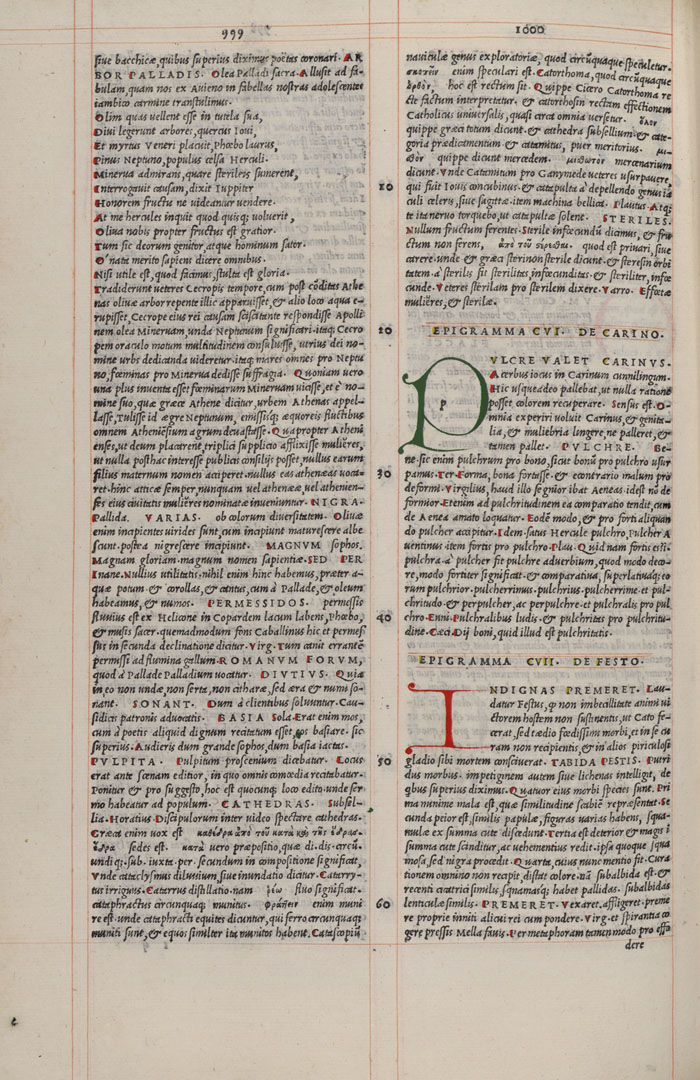 999
siue bacchicæ, quibus superius diximus poëtas coronari. AR
BOR PALLADIS. Olea Palladi sacra. Allusit ad fa-
bulam, quam nos ex Auieno in fabellas nostras adolescentes
iambico carmine transtulimus.
Olim quas uellent esse in tutela sua,
Diui legerunt arbores, quercus Ioui,
Et myrtus Veneri placuit, Phœbo laurus,
Pinus Neptuno, populus celsa Herculi.
Minerua admirans, quare steriles sumerent,
Interrogauit causam, dixit Iuppiter
Honorem fructu ne uideanur uendere.
At me hercules inquit quod quisq; uoluerit,
Oliua nobis propter fructus est gratior.
Tum sic deorum genitor, atque hominum sator.
O' nata merito sapiens dicere omnibus.
Nisi utile est, quod facimus, stulta est gloria.
Tradiderunt ueteres Cecropis tempore, cum post cōditas Athe
nas oliuæ arbor repente illic apparuisset, & alio loco aqua e-
rupisset, Cecrope eius rei causam sciscitante respondisse Apolli
nem olea Mineruam, unda Neptunum significari. itaq; Cecro
pem oraculo motum multitudinem consuluisse, utrius dei no-
mine urbs dedicanda uideretur. itaq; mares omnes pro Neptu
no, fœminas pro Minerua dedisse suffragia. Quoniam uero
una plus inuenta esset fœminarum Mineruam uicisse, et è no-
mine suo, quæ græce Athene dicitur, urbem Athenas appel-
lasse, Tulisse id ægre Neptunum, emissisq; æquoreis fluctibus
omnem Atheniēsium agrum deuastasse. Quapropter Atheni
enses, ut deum placarent, triplici supplicio affixisse mulieres,
ut nulla posthac interesse publicis consilijs posset, nullus earum
filius maternum nomen acciperet. nullus eas athenæas uoca-
ret. hinc atticæ semper, nunquam uel athenææ, uel athenien-
ses eius ciuitatis mulieres nominatæ inueniuntur. NIGRA.
Pallida. VARIAS. ob colorum diuersitatem. Oliuæ
enim incipientes uirides sunt, cum imaturescere albe
scunt. postea nigrescere incipiunt. MAGNVM sophos.
Magnam gloriam. magnum nomen sapientiæ. SED PER
Inane. Nullius utilitatis. nihil enim hinc habemus, præter a-
quæ potum. & corollas, & cantus, cum à Pallade, & oleum
habeamus, & numos. PERMESSIDOS. permessio
fluuius est ex Helicone in Copardem lacum labens, Phœbo,
& musis sacer. quemadmodum fons Caballinus hic et permes
sus in secunda declinatione dicitur. Virg. Tum canit errantē
permessi ad flumina gallum. ROMANVM FORVM,
quod à Pallade Palladium uocatur. DIVTIVS. Quia
in eo non undæ, non serta, non citharæ, sed æra & numi so-
nant. SONANT. Dum à clientibus soluuntur. Cau-
sidicis patronis aduocatis. BASIA Sola. Erat enim mos,
cum à poetis aliquid dignum recitatum esset eos basiare. sic
superius. Audieris dum grande sophos, dum basia iactas.
PVLPITA. Pulpitum proscenium dicebatur. Locus
erat ante scœnam editior, in quo omnis comœdia recitabatur.
Ponitur & pro suggesto, hoc est quocunq; loco edito. unde ser
mo habeatur ad populum. CATHEDRAS. Subsel-
lia. Horatius. Discipulorum inter uideo spectare cathedras.
Græca enim uox est καθέδρα ἀπὸ τοῦ κατὰ καὶ τῆς ἕδρας.
ἕδρα sedes est. κατὰ uero præpositio, quæ di. dis. circū.
undiq;. sub. iuxta. per. secundum in compositione significat,
Vnde cataclysmus diluuium siue inundatio dicitur. Catarry-
tus irriguus. Catarrus distillatio. nam ῥέω fluo significat.
cataphractus circunquaq; munitus. φράττειν enim muni
re est. unde cataphracti equites dicuntur, qui ferro circunquaq;
muniti sunt, & equos similiter ita munitos habent. Catascopiū
1000
nauiculæ genus exploratoriæ, quod circūquaque speculetur.
σκοπεῖν enim speculari est. Catorthoma, quod circūquaque
ὀρθὸν, hoc est rectum sit. Quippe Cicero Catorthoma re
cte factum interpretatur. & catorthosin rectam effectionem
Catholicus uniuersalis, quasi circa omnia uersetur. ὅλον
quippe græci totum dicunt. & cathedra subsellium. & cate-
goria prædicamentum & catamitus, puer meritorius. μι-
θὸν quippe dicunt mercedem. μισθωτὸν mercenarium
dicunt. Vnde Catamitum pro Ganymede ueteres usurpauere,
10
qui fuit Iouis concubinus. & catapulta à depellendo genus ia
culi celeris, siue sagittæ. item machina bellica. Plautus. Atq;
te ita neruo torquebo, ut catapultæ solent. STERILES.
Nullum fructum ferentes. Sterile infœcundū dicimus, & fru
ctum non ferens, ἀπὸ τοῦ στερεῖσθαι. quod est priuari, siue
carere. unde & græca sterinon sterile dicunt. & steresin orbi
tatem. à sterilis fit sterilitas, infœcunditas. & steriliter, infœ
cunde. Veteres sterilam pro sterilem dixere. Varro. Effœtæ
mulieres, & sterilæ.
20
EPIGRAMMA CVI. DE CARINO.
PVLCRE VALET CARINVS.
Acerbus iocus in Carinum cunnilingum.
Hic usqueadeo pallebat, ut nulla ratione
posset colorem recuperare. Sensus est. O-
mnia experiri uoluit Carinus, & genita-
lia, & muliebria lingere, ne palleret, &
tamen pallet. PVLCHRE. Be-
ne. sic enim pulchrum pro bono, sicut bonū pro pulchro usur
30
pamus. Ter. Forma, bona fortasse. & econtrario malum pro
deformi. Virgilius, haud illo segnior ibat Aeneas. idest nō de
formior. Etenim ad pulchritudinem ea comparatio tendit, cum
de Aenea amato loquatur. Eodē modo, & pro forti aliquan
do pulcher accipitur. Idem. satus Hercule pulchro, Pulcher A
uentinus. item fortis pro pulchro. Plau. Quid nam fortis est?
pulchra. à pulcher fit pulchre aduerbium, quod modo deco-
re, modo fortiter significat. & comparatiua, superlatiuaq; eo
rum pulchrior. pulcherrimus. pulchrius. pulcherrime. et pul-
chritudo. & perpulcher, ac perpulchre. et pulchralis pro pul
40
chro. Enni. Pulchralibus ludis. & pulchritas pro pulchritu-
dine. Cæci. Dij boni, quid illud est pulchritatis.
EPIGRAMMA CVII. DE FESTO.
INDIGNAS PREMERET. Lau-
datur Festus, ꝙ non imbecillitate animi ui
ctorem hostem non sustinentis, ut Cato fe-
cerat, sed tædio fœdissimi morbi, et in se cu
ram non recipientis, & in alios periculosi
50
gladio sibi mortem consciuerat. TABIDA PESTIS. Putri
dus morbus. impetiginem autem siue lichenas intelligit, de
qbus superius diximus. Quatuor eius morbi species sunt. Pri
ma minime mala est, quæ similitudine scabiē repræsentat. Se
cunda peior est, similis papulæ, figuras uarias habens, squa-
mulæ ex summa cute discedunt. Tertia est deterior & magis i
summa cute scinditur, ac uehementius redit. ipsa quoque squa
mosa sed nigra procedit. Quarta, cuius nunc mentio fit. Cura
tionem omnino non recipit, distat colore. nā subalbida est. &
recenti cicatrici similis, squamasq; habet pallidas. subalbidas
60
lenticulæ similis. PREMERET. Vexaret. affligeret. preme
re proprie inniti alicui rei cum pondere. Virg. et spirantia co
gere pressis Mella fauis. Per metaphoram tamen modo pro effo
dere